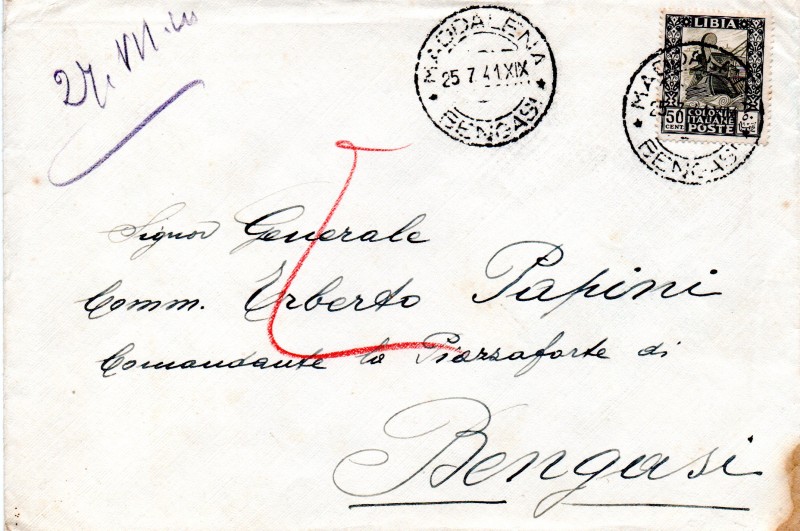 27.VII.
MADDALENA
25.7.41.XIX
* BENGASI *
LIBIA
50 CENT.
COLONIE
ITALIANE
POSTE
MADDALENA
25.7
* BENGASI *
Signor Generale
Comm. Erberto Papini
Comandante la Piazzaforte di
Bengasi